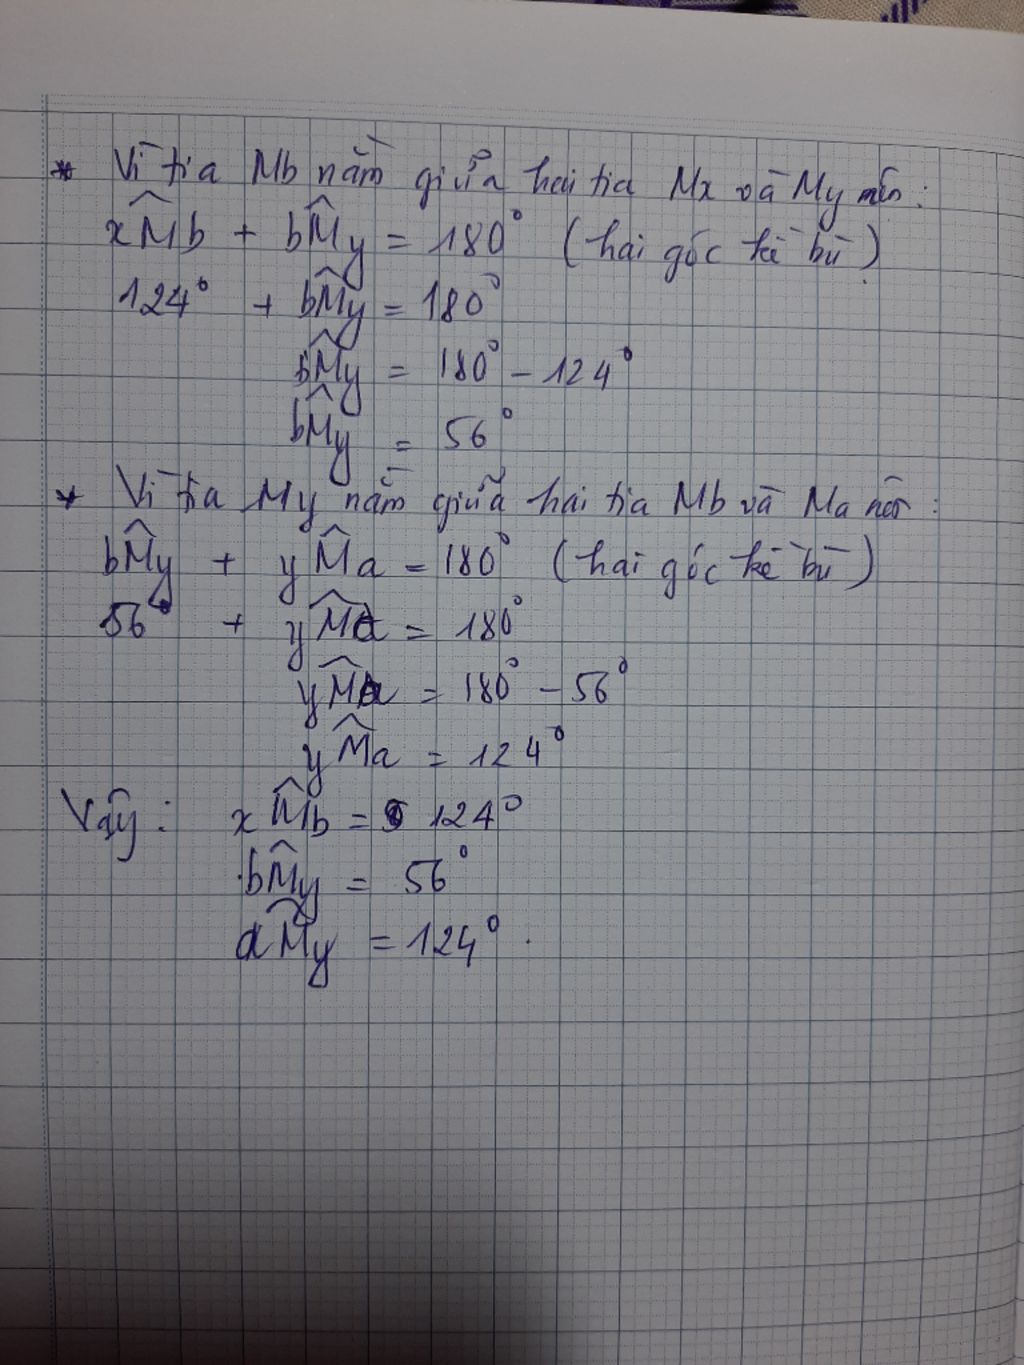 * Vì tia Mb nằm giữa hai tia Mx và My nên:
xM̂b + bM̂y = 180° (hai góc kề bù)
124° + bM̂y = 180°
bM̂y = 180° - 124°
bM̂y = 56°
* Vì tia My nằm giữa hai tia Mb và Ma nên:
bM̂y + yM̂a = 180° (hai góc kề bù)
56° + yM̂a = 180°
yM̂a = 180° - 56°
yM̂a = 124°
Vậy: xM̂b = 124°
bM̂y = 56°
aM̂y = 124°.